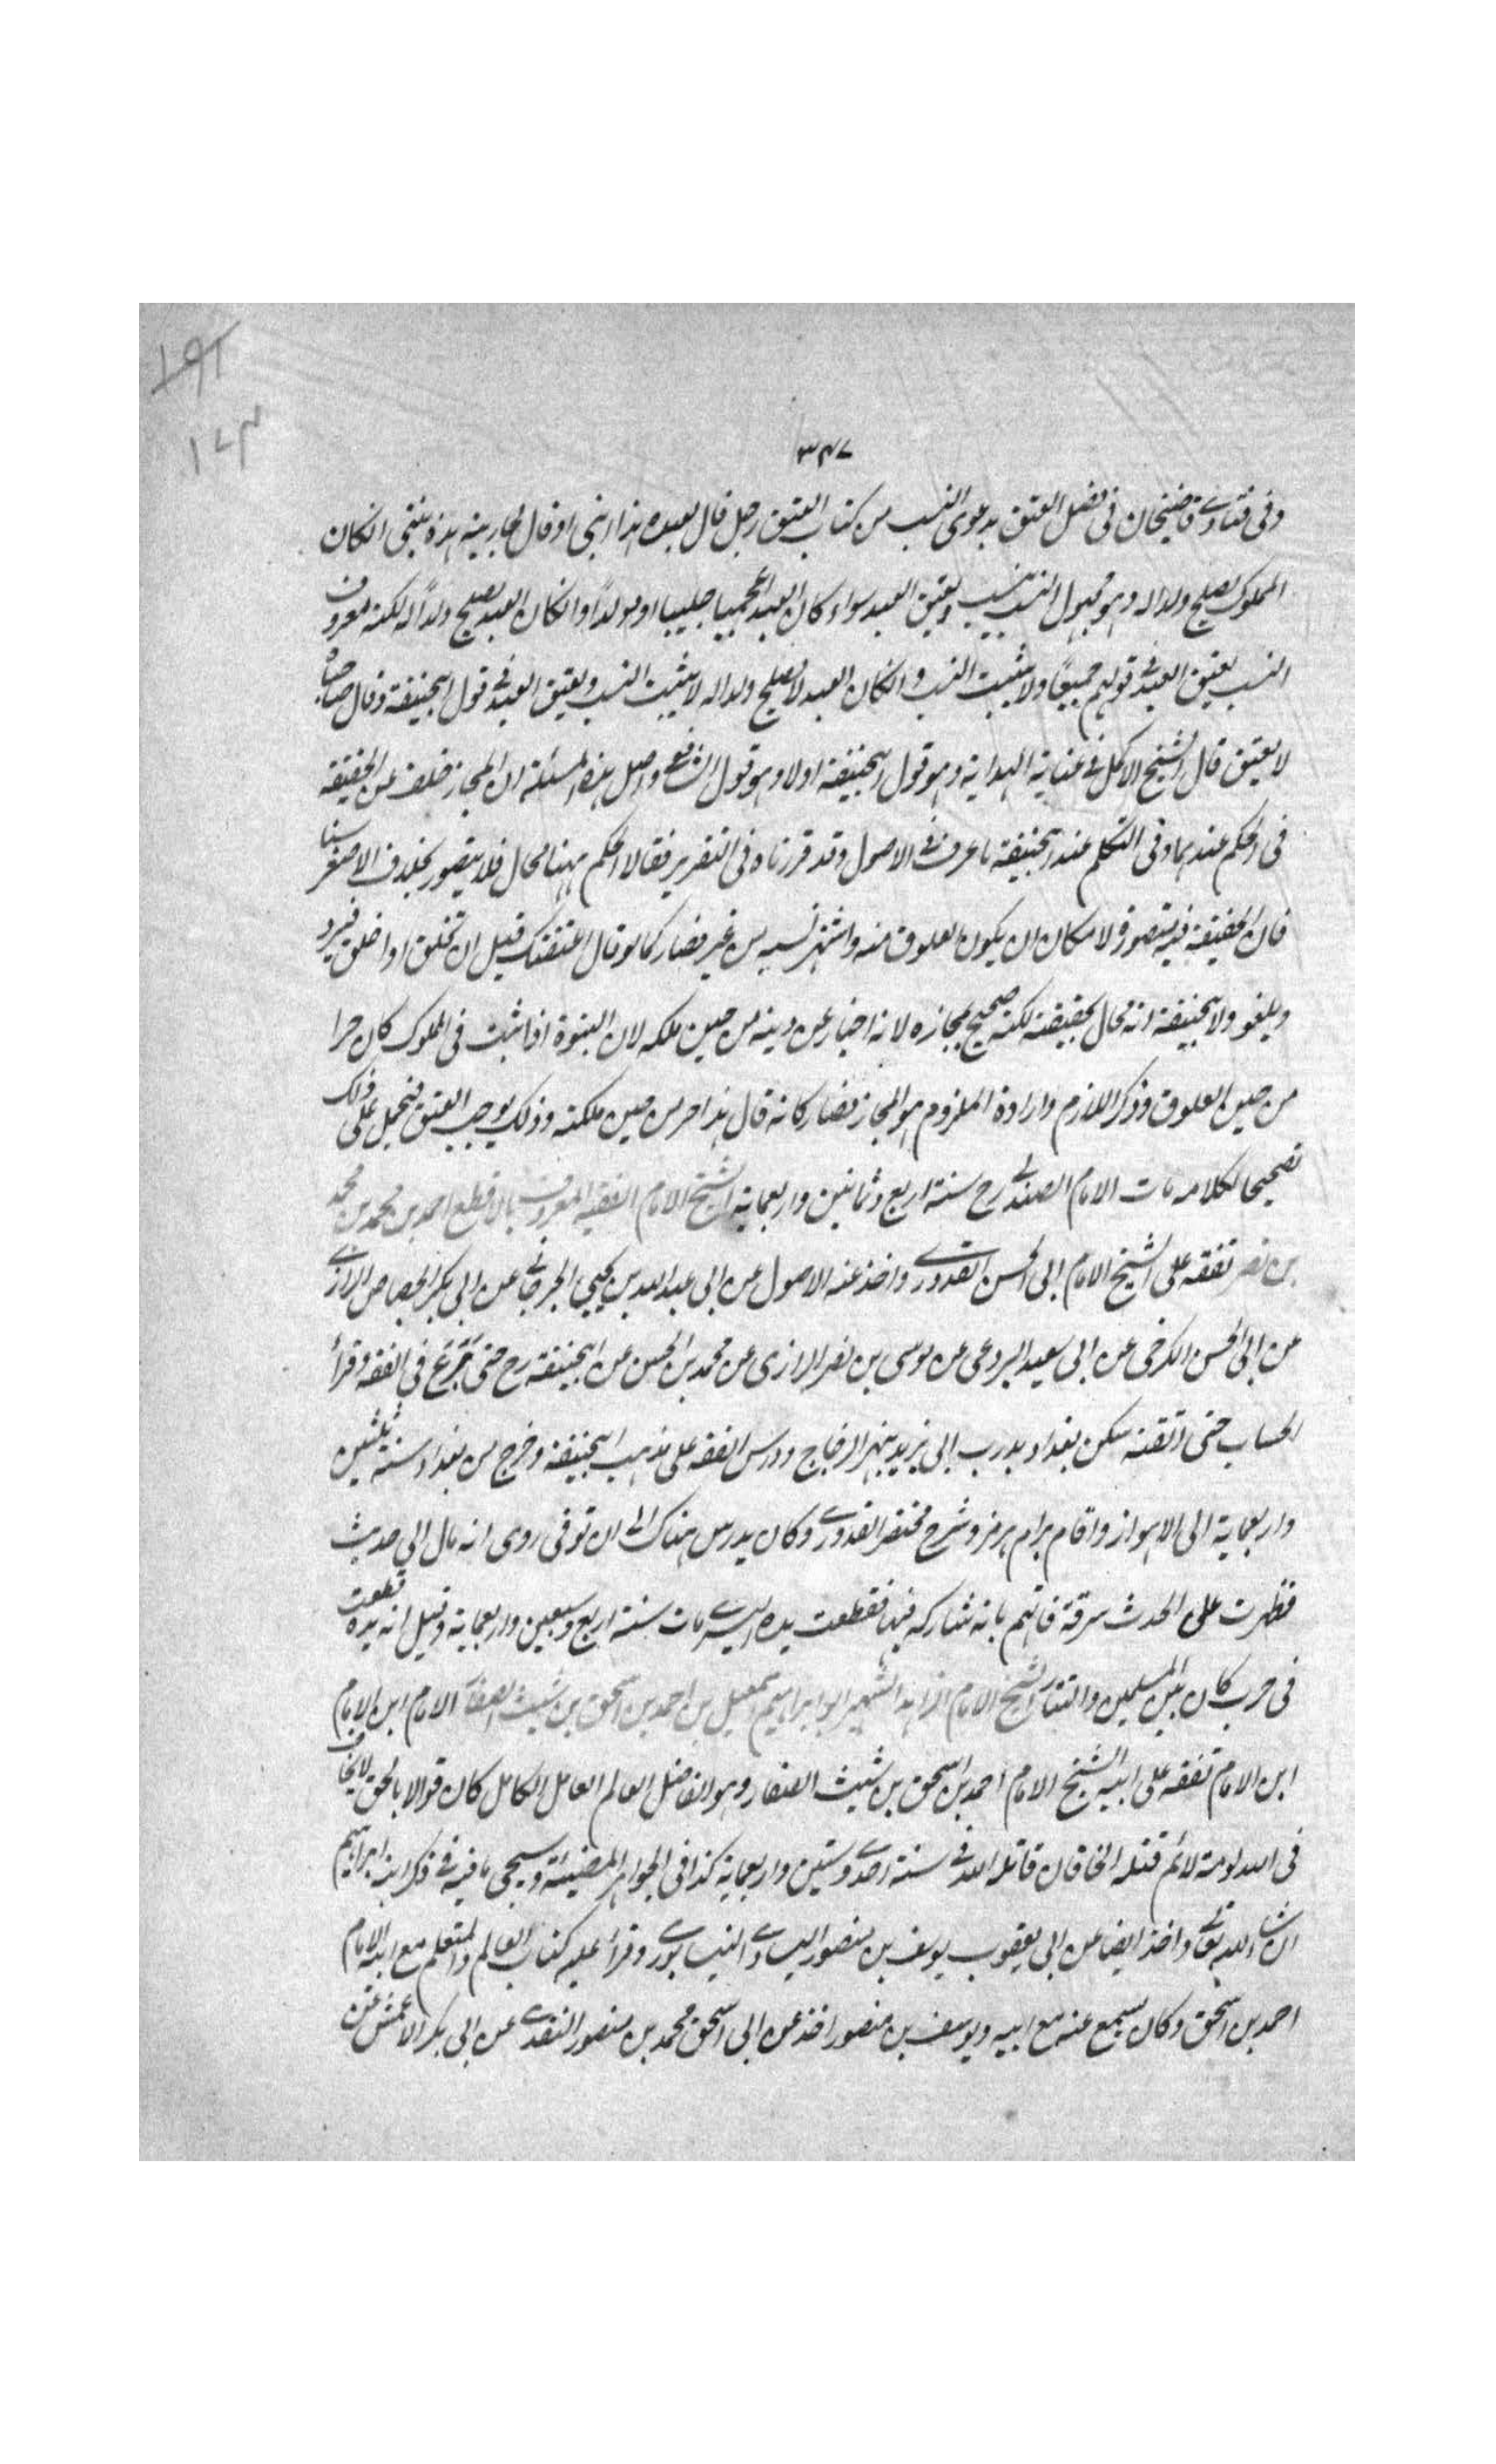 ١٩٢
١٧٤
٣٤٧
وفى فتاوے قاضيخان فى فصل العتق بدعوى النسب من كتاب العتق رجل قال لعبده هذا ابنى او قال لجاريته هذه بنتى انكان
المملوك يصلح ولدا له وهو مجهول النسب يثبت النسب ويعتق العبد سواء كان العبد اعجميا جليبا او مولداً وانكان العبد يصلح ولداً له لكنه معروف
النسب يعتق العبد فى قولهم جميعاً ولا يثبت النسب وانكان العبد لا يصلح ولدا له لا يثبت النسب ويعتق العبد فى قول ابيحنيفة وقال صاحباه
لا يعتق قال الشيخ الاكمل فى عناية الهداية وهو قول ابيحنيفة اولا وهو قول الشافعى واصل هذه المسئلة ان المجاز خلف عن الحقيقة
فى الحكم عندهما وفى التكلم عند ابيحنيفة ما عرف فى الاصول وقد قررناه فى التقرير فقالا الحكم ههنا محال فلا يتصور بخلاف الاصغر سنا
فان الحقيقة فيه يتصور لامكان ان يكون العلوق منه واشتهر نسبه من غيره فصار كما لو قال اعتقتك قبل ان تخلق او اخلق فيرد
ويلغو ولابيحنيفة انه محال بحقيقته لكنه صحيح بمجازه لانه اخبار عن حريته من حين ملكه لان البنوة اذا ثبت فى المملوك كان حرا
من حين العلوق وذكر اللازم وارادة الملزوم هو المجاز فصار كانه قال هذا حر من حين ملكته وذلك يوجب العتق فيحمل على ذلك
تصحيحا لكلامه مات الامام الصندلى رح سنة اربع وثمانين واربعماية الشيخ الامام الفقيه المعروف بالاقطع احمد بن محمد بن محمد
بن نصر تفقه على الشيخ الامام ابى الحسن القدورے واخذ عنه الاصول عن ابى عبد الله بن يحيى الجرجانى عن ابى بكر الجصاص الرازے
عن ابى الحسن الكرخى عن ابى سعيد البردعى عن موسى بن نصر الرازى عن محمد بن الحسن عن ابيحنيفة رح حتى برع فى الفقه وقرأ
الحساب حتى اتقنه سكن بغداد بدرب ابى يزيد بنهر الدجاج ودرس الفقه على مذهب ابيحنيفة وخرج من بغداد سنة ثلثين
واربعماية الى الاهواز واقام برام هرمز وشرح مختصر القدورے وكان يدرس هناك الى ان توفى روى انه مال الى حدث
فظهرت على الحدث سرقة فاتهم بانه شاركه فيها فقطعت يده اليسرے مات سنة اربع وسبعين واربعماية وقيل انه يده قطعت
فى حرب كان بين المسلمين والتتار الشيخ الامام الزاهد الشهير ابو ابراهيم اسمعيل بن احمد بن اسحق بن شيث الصفار الامام ابن الامام
ابن الامام تفقه على ابيه الشيخ الامام احمد بن اسحق بن شيث الصفار وهو الفاضل العالم العامل الكامل كان قوالا بالحق لا يخاف
فى الله لومة لائم قتله الخاقان قاتله الله فى سنة احدے وستين واربعماية كذا فى الجواهر المضيئة وسيجى ما فيه فى ذكر ابنه ابراهيم
ان شاء الله تعالى واخذ ايضا عن ابى يعقوب يوسف بن منصور السيارے النيسابورے وقرأ عليه كتاب العالم والمتعلم مع ابيه الامام
احمد بن اسحق وكان يسمع عنه مع ابيه ويوسف بن منصور اخذ عن ابى اسحق محمد بن منصور النقدے عن ابى بكر الاعمش عن